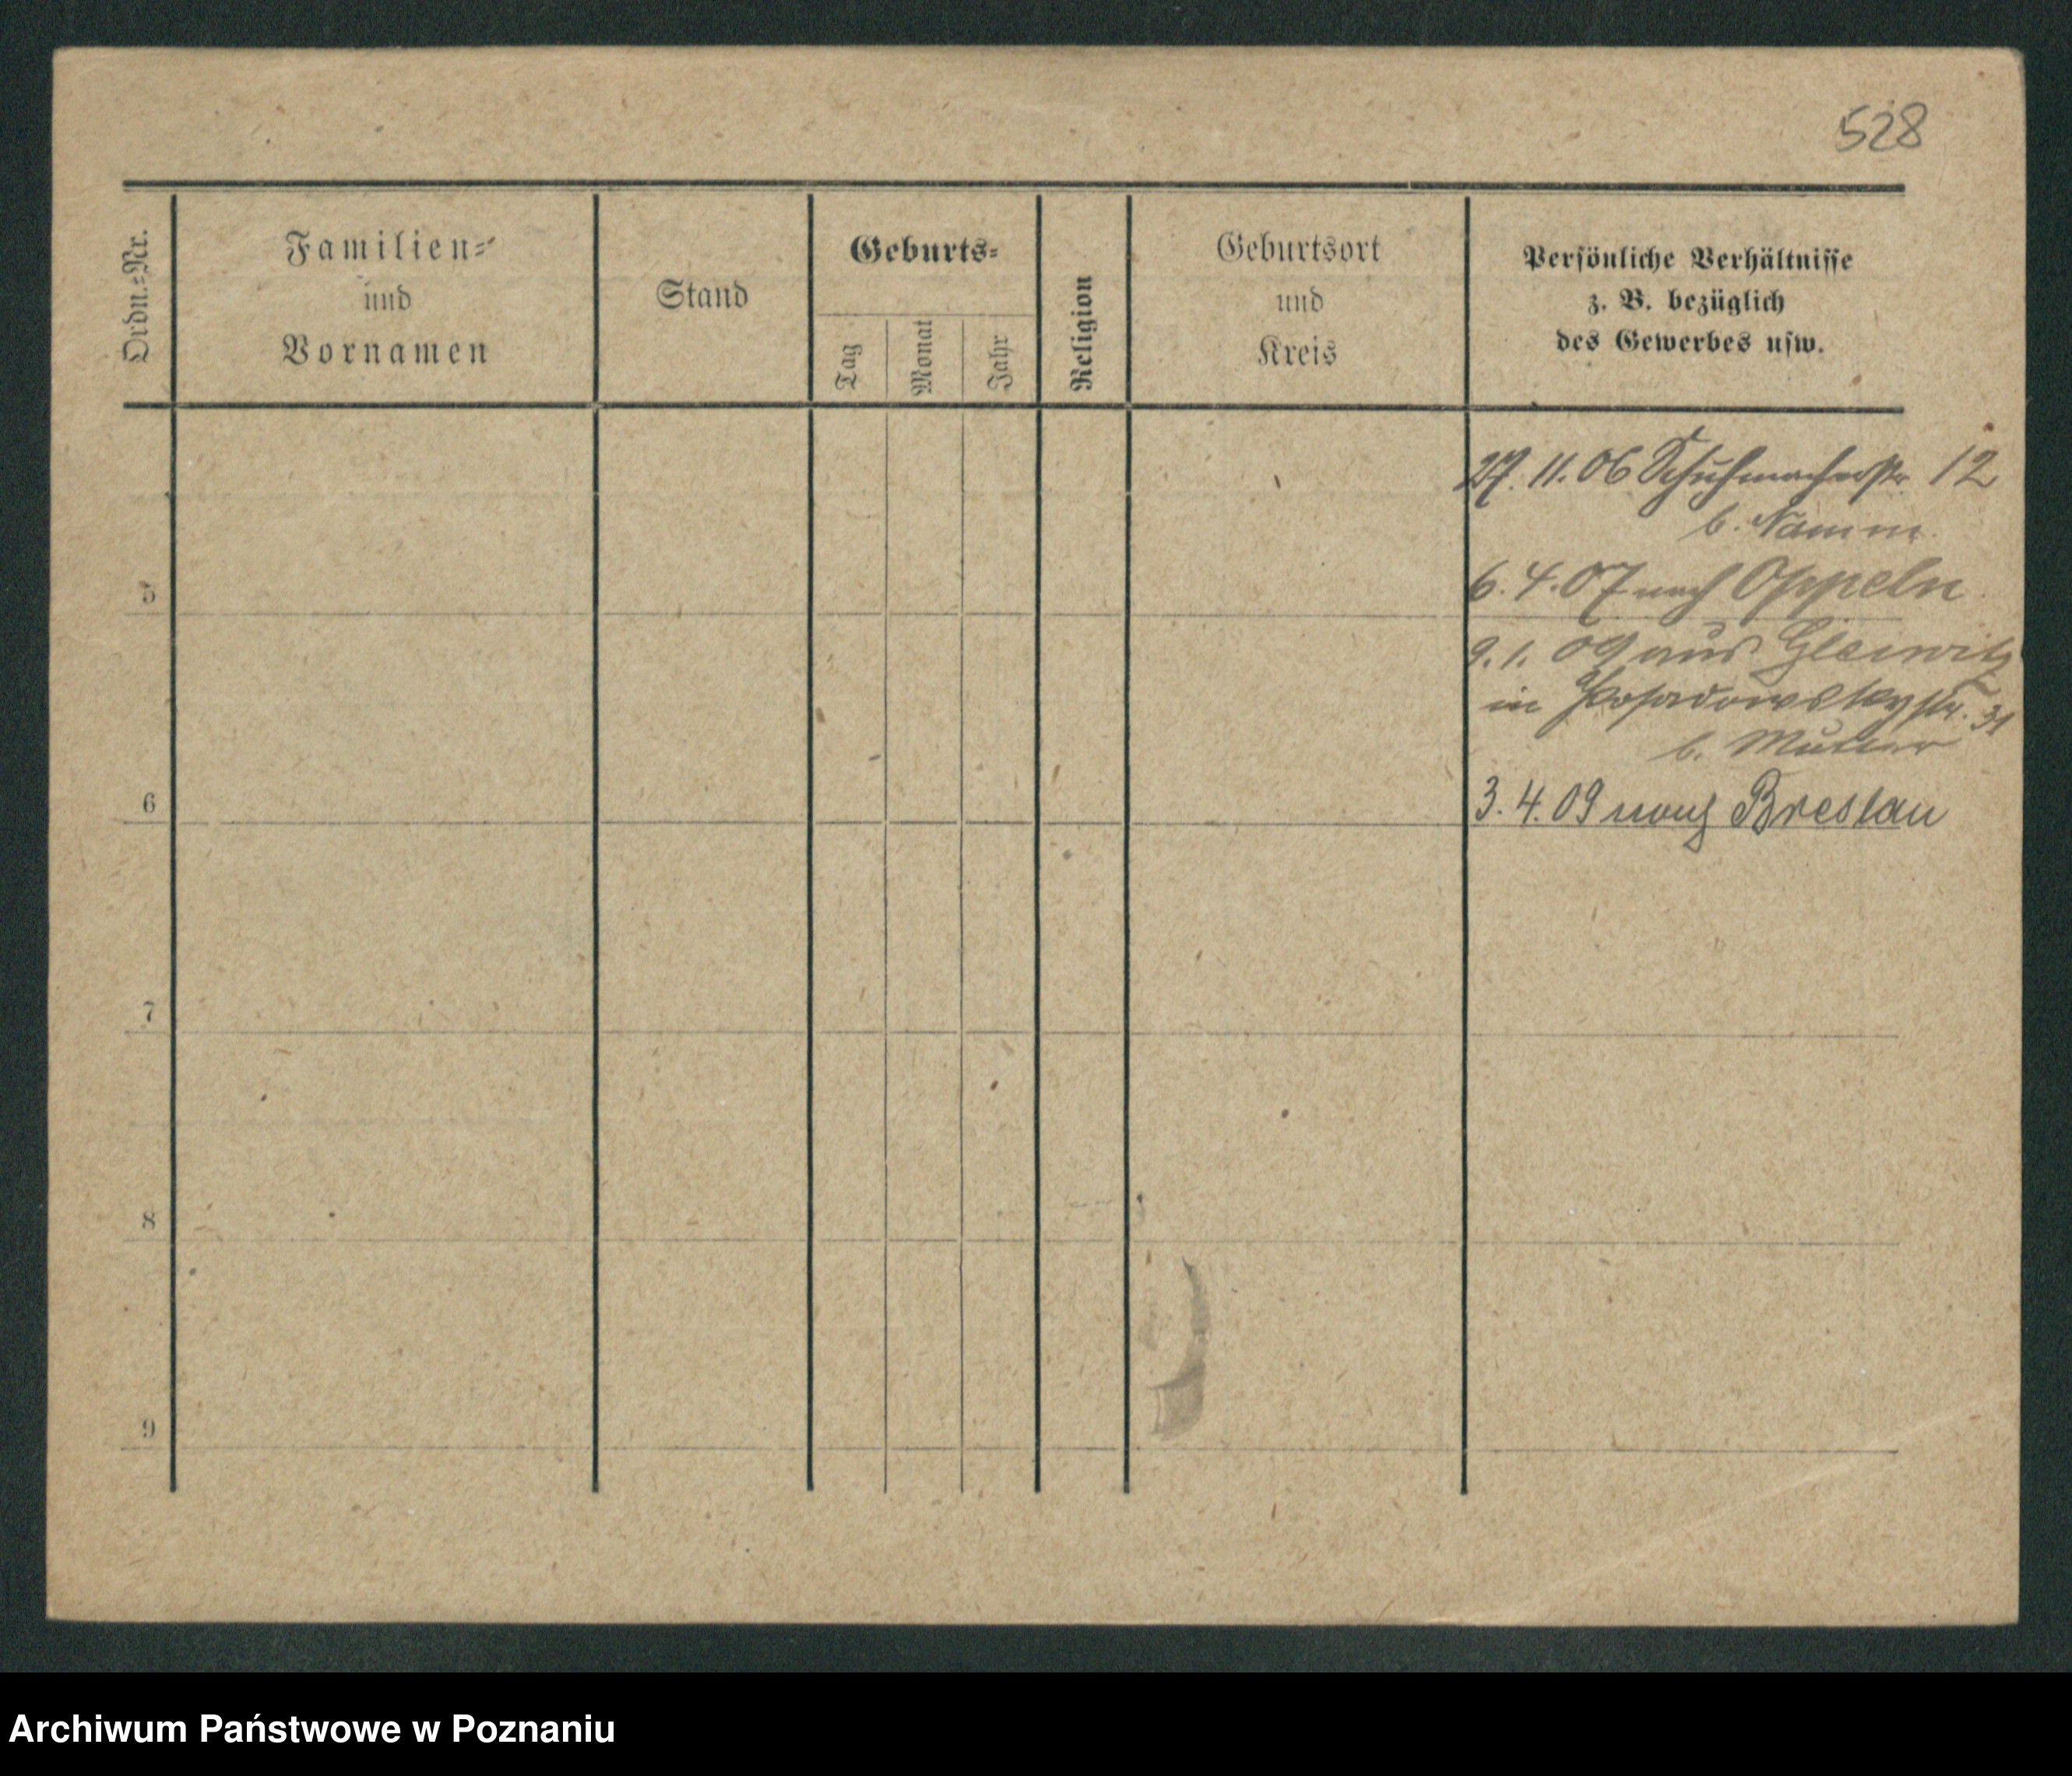 528
Ordn.=Nr.
Familien=
und
Vornamen
Stand
Geburts=
Tag
Monat
Jahr
Religion
Geburtsort
und
Kreis
Persönliche Verhältnisse
z. B. bezüglich
des Gewerbes usw.
27. 11. 06 Schuhmacherstr. 12
b. Namm
5
6. 4. 07 nach Oppeln
9. 1. 09 aus Gleiwitz
in Posadowskystr. 31
b. Mutter
6
3. 4. 09 nach Breslau
7
8
9
Archiwum Państwowe w Poznaniu